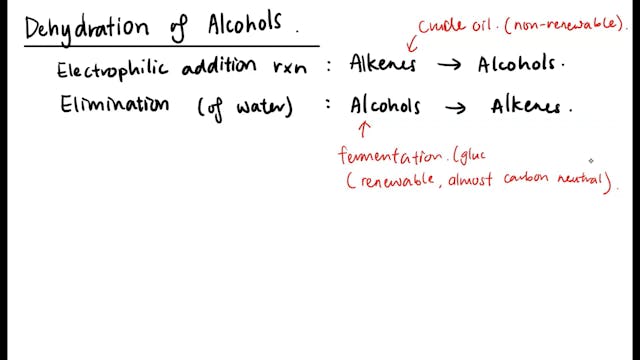 Dehydration of Alcohols.
crude oil. (non-renewable).
Electrophilic addition rxn : Alkenes → Alcohols.
Elimination (of water) : Alcohols → Alkenes.
fermentation. (gluc
(renewable, almost carbon neutral).